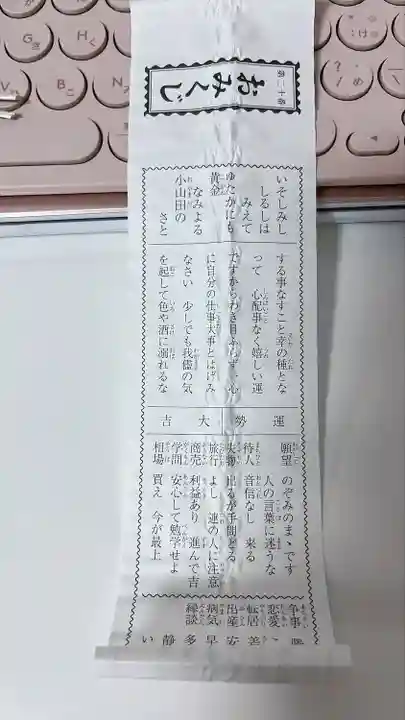 第二十番
おみくじ
いそしみし
しるしは
みえて
ゆたかにも
黄金
なみよる
小山田の
さと
する事なすこと幸の種とな
って 心配事なく嬉しい運
ですからわき目ふらず一心
に自分の仕事大事とはげみ
なさい 少しでも我儘の気
を起して色や酒に溺れるな
運勢大吉
願望 のぞみのまゝです
人の言葉に迷うな
待人 音信なし 来る
失物 出るが手間どる
旅行 よし 連の人に注意
商売 利益あり 進んで吉
学問 安心して勉学せよ
相場 買え 今が最上
争事
恋愛
転居
出産 安
病気 早
縁談 多
静
い
G き
H く
V
B こ
N み
M も